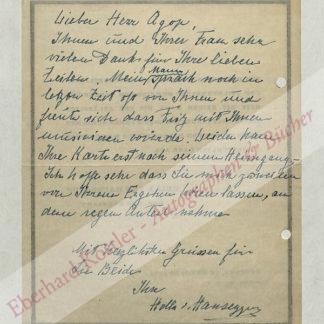 Lieber Herr Agop,
Ihnen und Ihrer Frau sehr
vielen Dank für Ihre lieben
Zeilen. Mein Mann sprach noch in
letzter Zeit oft von Ihnen und
freute sich dass Fritz mit Ihnen
musizieren würde. Leider kam
Ihre Karte erst nach seinem Heimgang.
Ich hoffe sehr dass Sie mich zuweilen
von Ihrem Ergehen hören lassen, an
dem regen Anteil nehme
Mit herzlichsten Grüssen für
Sie Beide
Ihre
Hella v. Hausegger
Eberhard Köstler - Autographen & Bücher